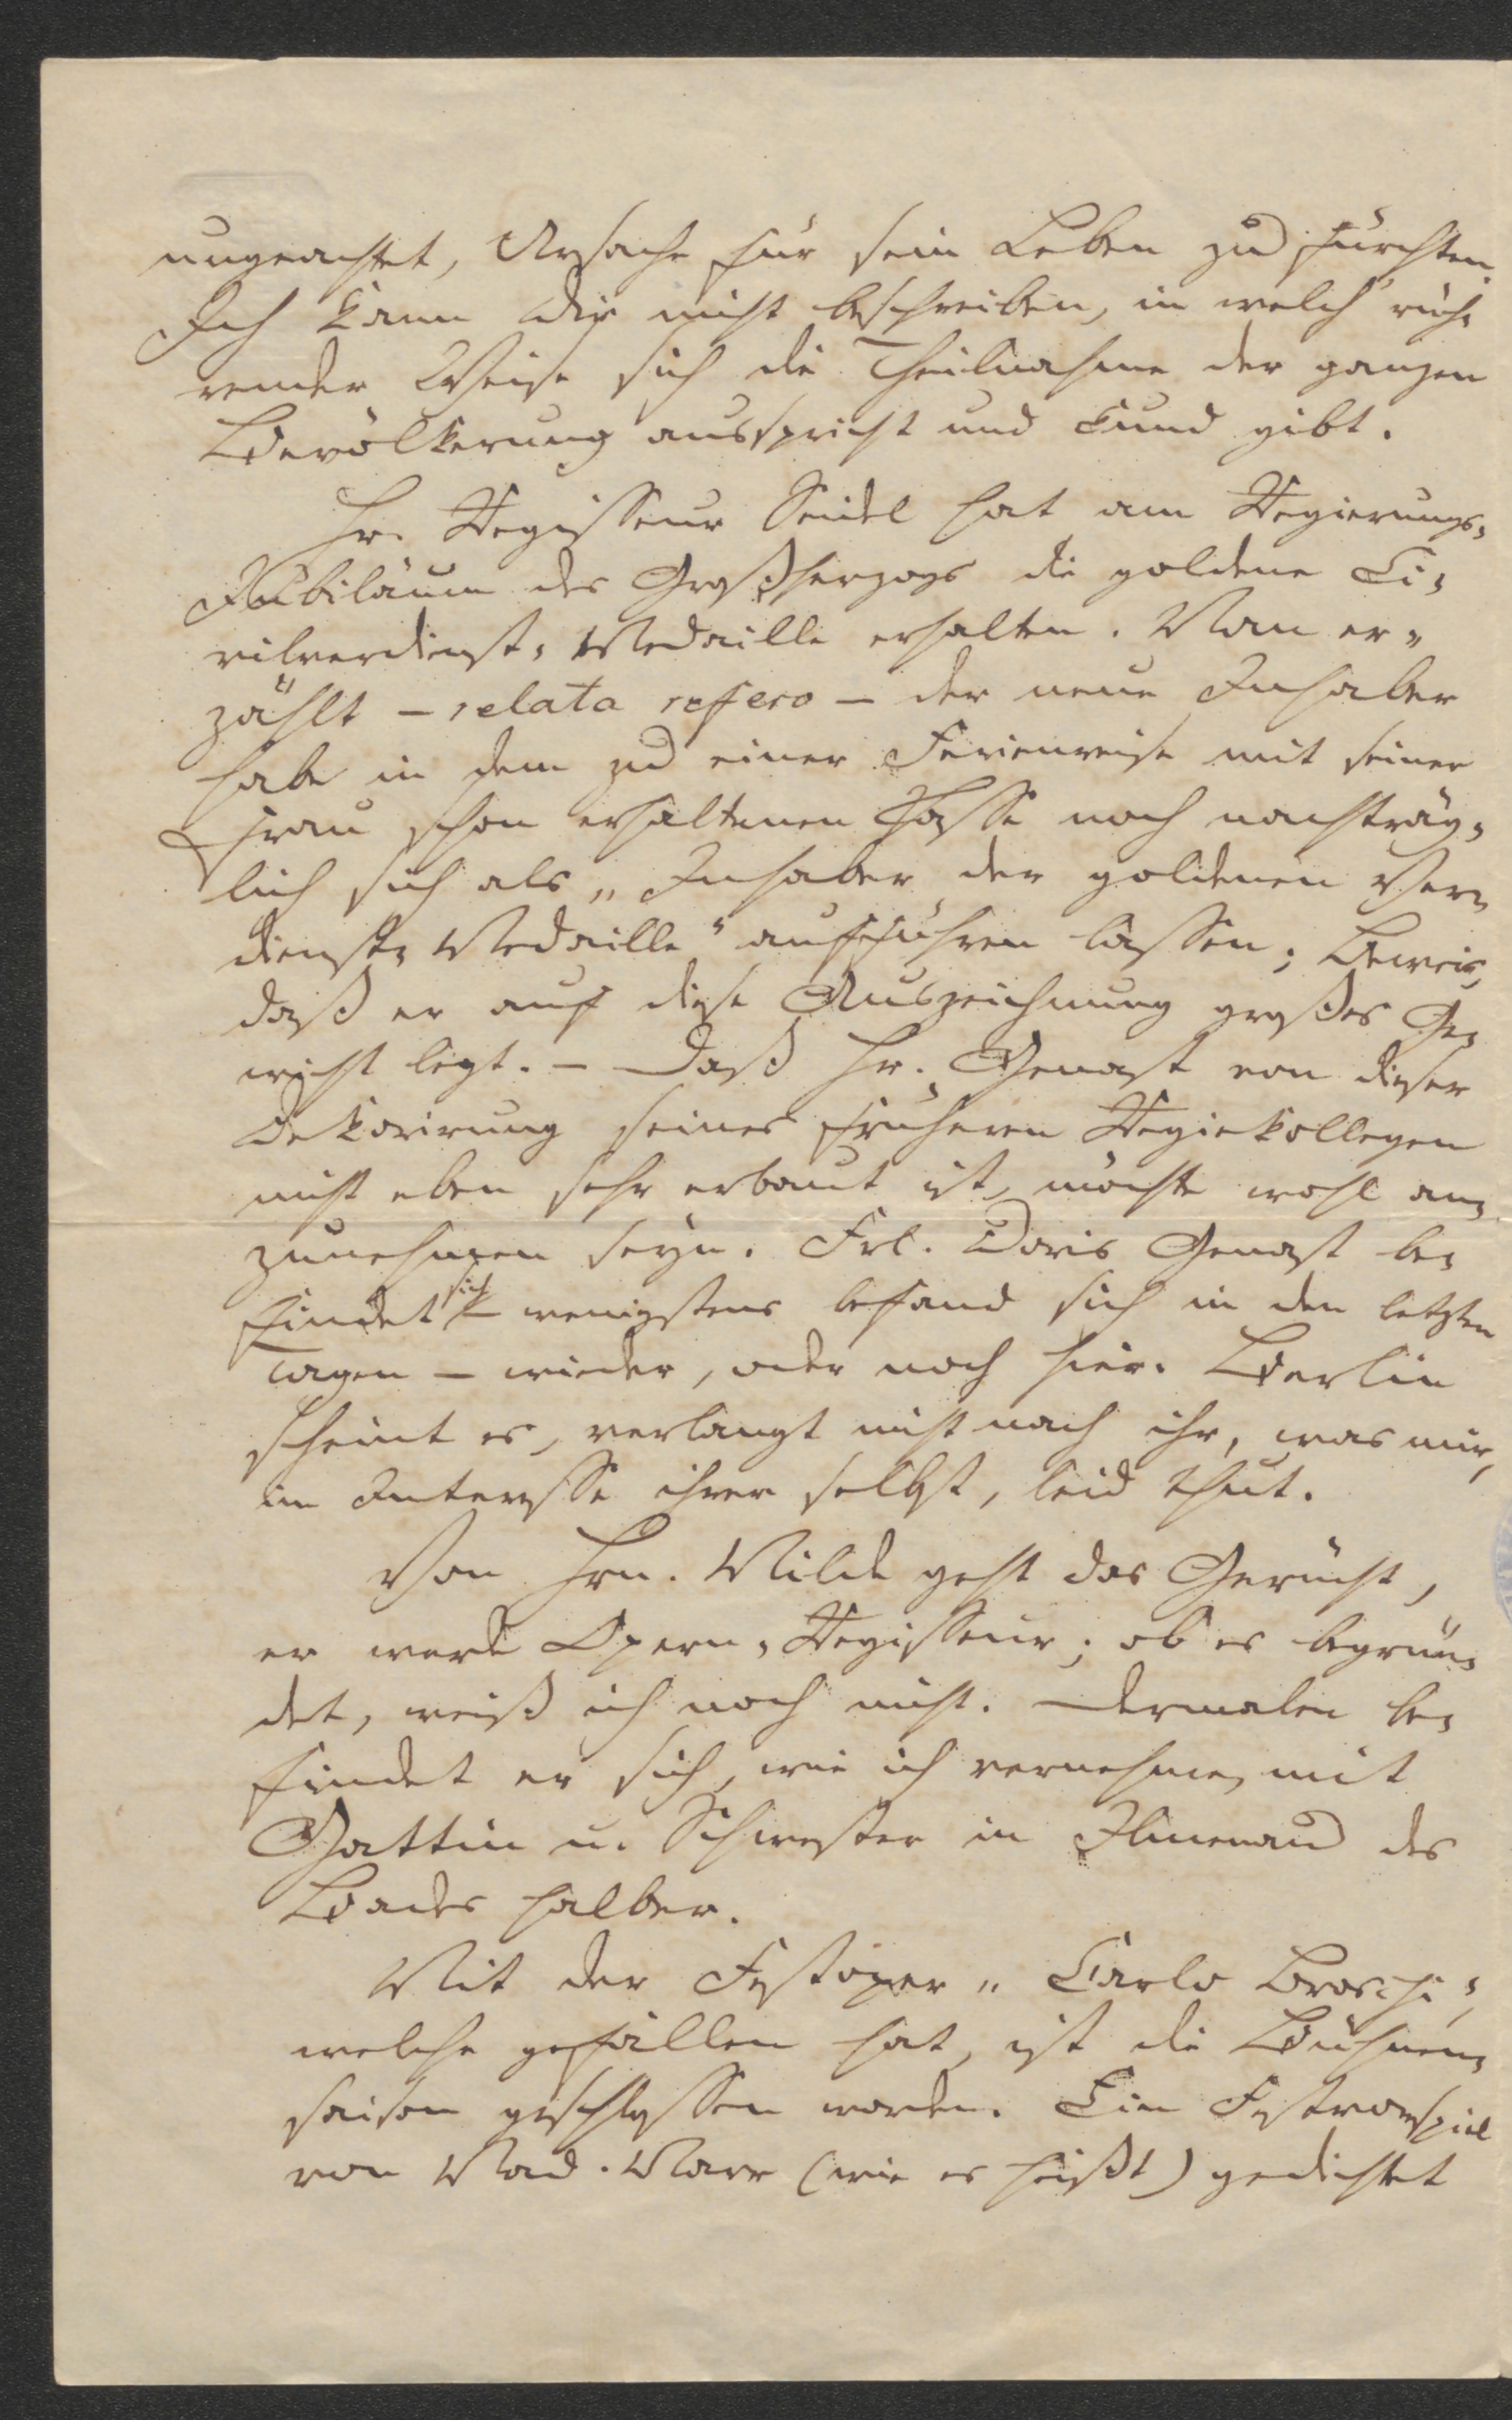 ungeachtet, Ursache für sein Leben zu fürchten.
Ich kann Dir nicht beschreiben, in welch rüh-
render Weise sich die Theilnahme der ganzen
Bevölkerung ausspricht und kund gibt.
Hr. Regisseur Seidel hat am Regierungs-
Jubiläum des Großherzogs die goldene Ci-
vilverdienst-Medaille erhalten. Man er-
zählt – relata refero – der neue Inhaber
habe in dem zu einer Ferienreise mit seiner
Frau schon erhaltenen Passe noch nachträg-
lich sich als „Inhaber der goldenen Ver-
dienst-Medaille“ aufführen lassen; Beweis,
daß er auf diese Auszeichnung großes Ge-
wicht legt. – Daß Hr. Genast von dieser
Dekorirung seines früheren Regiekollegen
nicht eben sehr erbaut ist, möchte wohl an-
zunehmen seyn. Frl. Doris Genast be-
findet sich – wenigstens befand sich in den letzten
Tagen – wieder, oder noch hier. Berlin
scheint es, verlangt nicht nach ihr, was mir,
im Interesse ihrer selbst, leid thut.
Von Hrn. Milde geht das Gerücht,
er werde Opern-Regisseur; ob es begrün-
det, weiß ich noch nicht. Dermalen be-
findet er sich, wie ich vernehme, mit
Gattin u. Schwester in Ilmenau des
Bades halber.
Mit der Festoper „Carlo Broschi“,
welche gefallen hat, ist die Bühnen-
saison geschlossen worden. Ein Festvorspiel
von Mad. Marr (wie es heißt) gedichtet